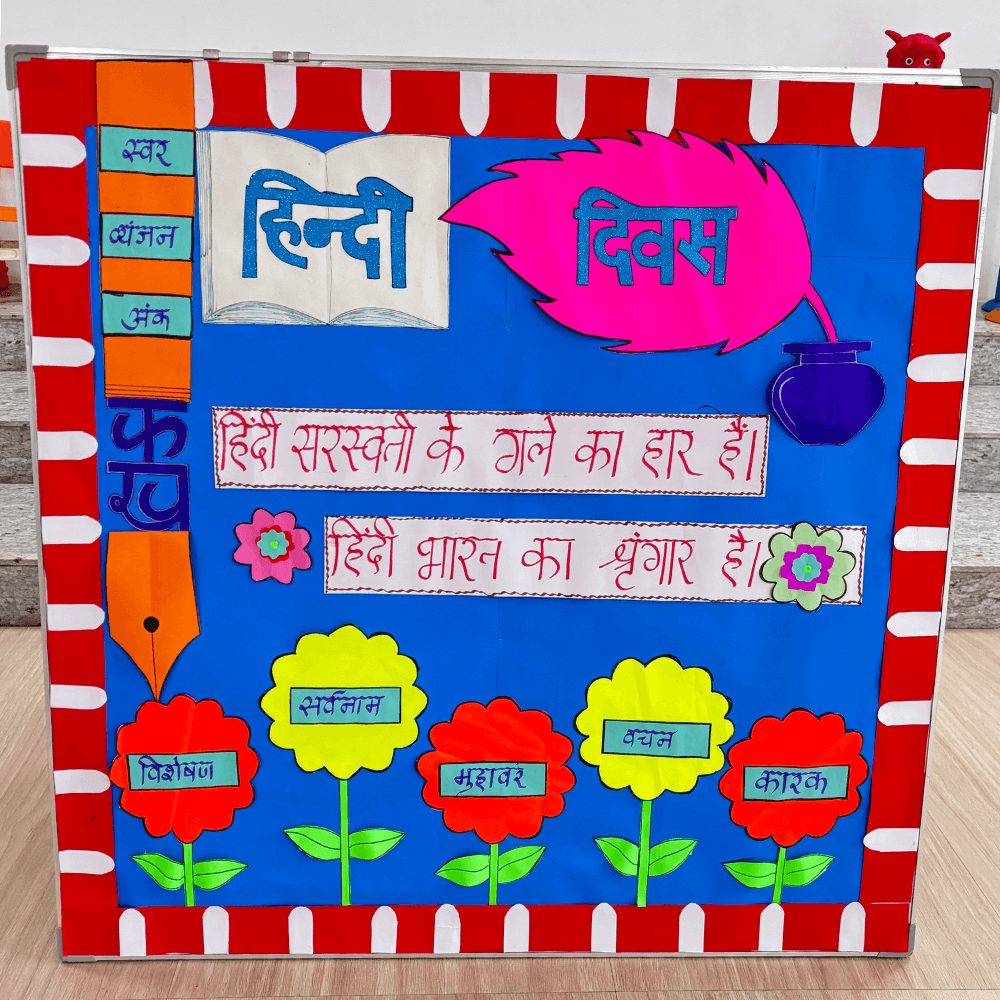 स्वर
व्यंजन
अंक
क
ख
हिन्दी
दिवस
हिंदी सरस्वती के गले का हार हैं।
हिंदी भारत का श्रृंगार है।
विशेषण
सर्वनाम
मुहावर
वचन
कारक